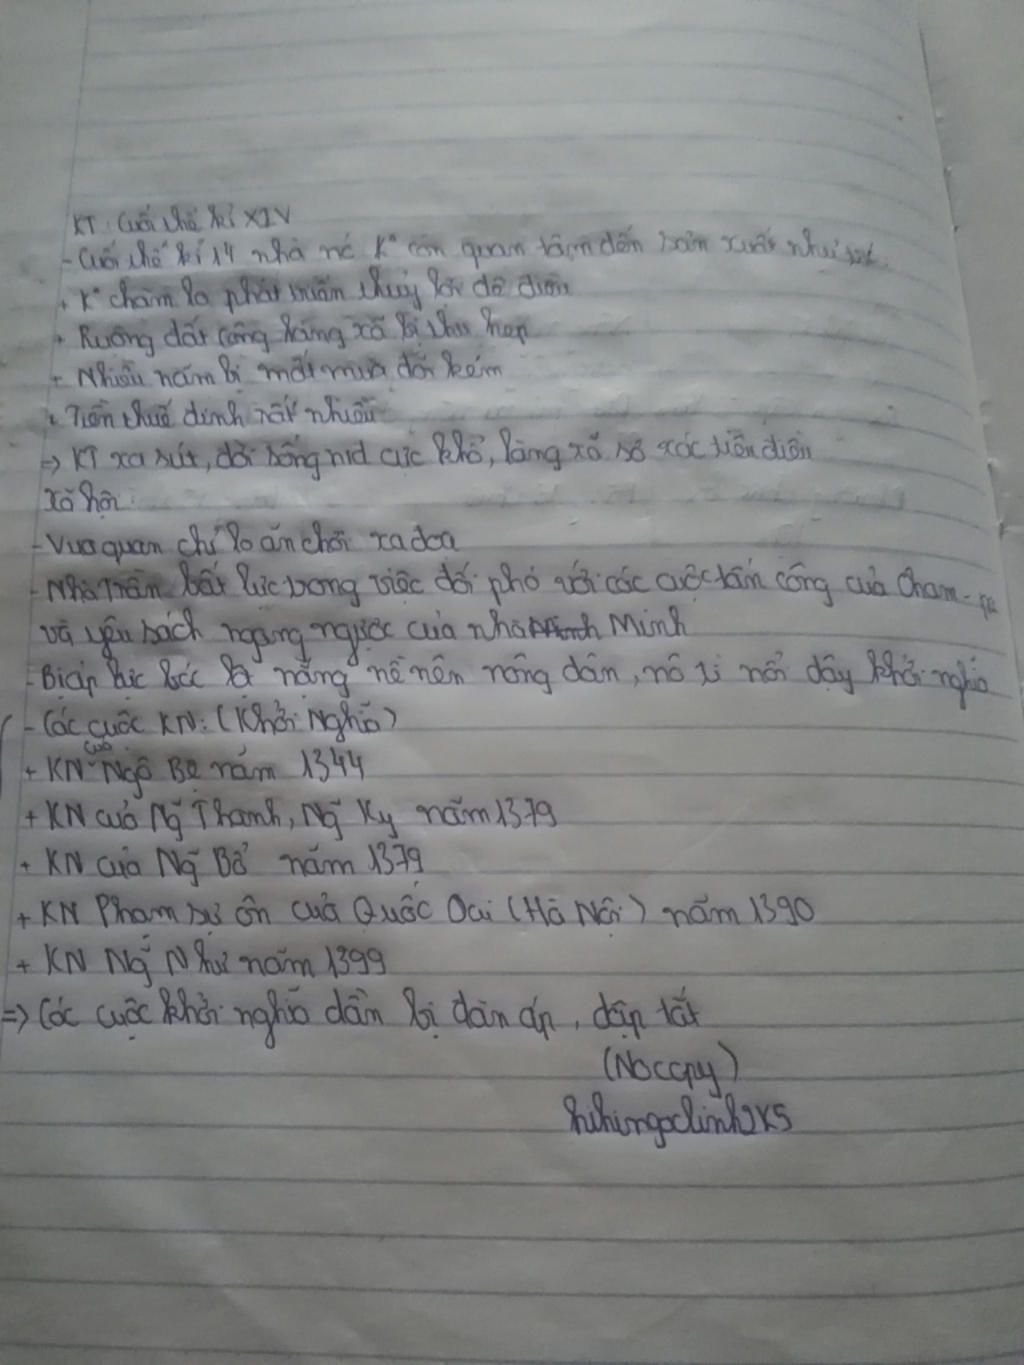 KT: Cuối thế kỉ XIV
- Cuối thế kỉ 14 nhà nc K° còn quan tâm đến sản xuất như
+ K° chăm lo phát triển thủy lợi đê điều
+ Ruộng đất công làng xã bị thu hẹp
+ Nhiều năm bị mất mùa đói kém
+ Tiền thuế đinh rất nhiều
=> KT xa sút, đời sống nd cực khổ, làng xã sơ xác tiêu điều
Xã hội:
- Vua quan chỉ lo ăn chơi xa đoạ
- Nhà Trần bất lực trong việc đối phó với các cuộc tấn công của Cham-pa
và yêu sách ngang ngược của nhà Minh
- Bị áp bức bóc lột nặng nề nên nông dân, nô tì nổi dậy khởi nghĩa
- Các cuộc KN: (Khởi Nghĩa)
+ KN của Ngô Bệ năm 1344
+ KN của Ng~ Thanh, Ng~ Kỵ năm 1379
+ KN của Ng~ Bổ năm 1379
+ KN Phạm sư ôn của Quốc Oai (Hà Nội) năm 1390
+ KN Ng~ Như năm 1399
=> Các cuộc khởi nghĩa dần bị đàn áp, dập tắt
(Nocopy)
hihingoclinh2K5